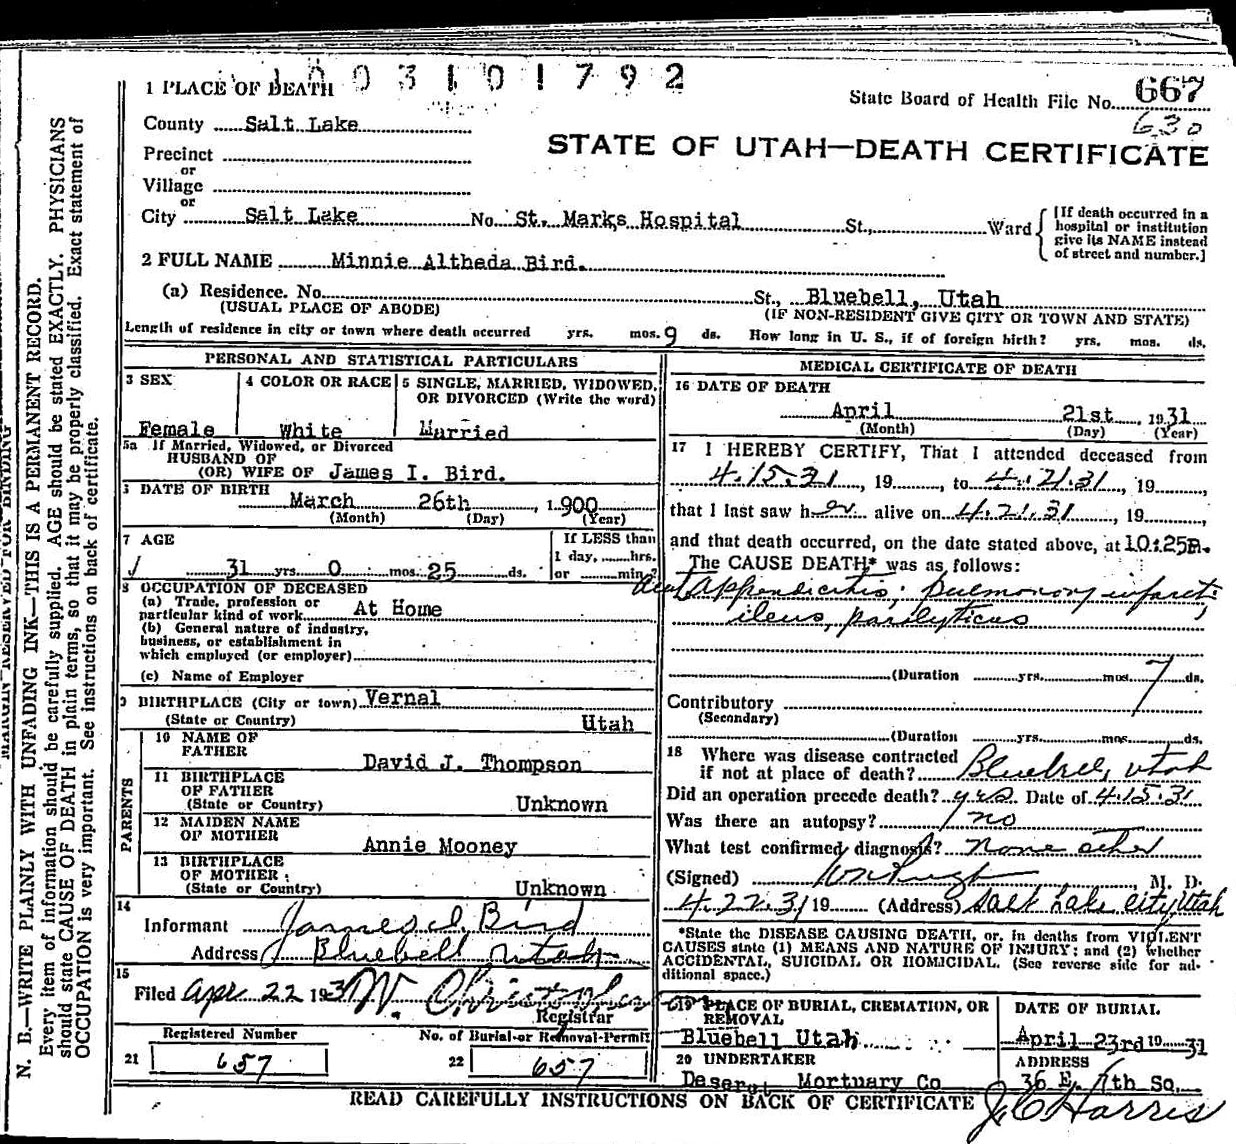 1003101792
1 PLACE OF DEATH
State Board of Health File No. 667
630
County Salt Lake
STATE OF UTAH—DEATH CERTIFICATE
Precinct
or
Village
or
City Salt Lake No. St. Marks Hospital St., Ward
[If death occurred in a hospital or institution give its NAME instead of street and number.]
2 FULL NAME Minnie Altheda Bird.
(a) Residence. No. St., Bluebell, Utah
(USUAL PLACE OF ABODE) (IF NON-RESIDENT GIVE CITY OR TOWN AND STATE)
Length of residence in city or town where death occurred yrs. mos. 9 ds. How long in U. S., if of foreign birth? yrs. mos. ds.
PERSONAL AND STATISTICAL PARTICULARS
3 SEX
Female
4 COLOR OR RACE
White
5 SINGLE, MARRIED, WIDOWED,
OR DIVORCED (Write the word)
Married
5a If Married, Widowed, or Divorced
HUSBAND OF
(OR) WIFE OF James I. Bird.
DATE OF BIRTH
March 26th, 1900
(Month) (Day) (Year)
7 AGE
31 yrs. 0 mos. 25 ds.
If LESS than
1 day, hrs.
or min?
8 OCCUPATION OF DECEASED
(a) Trade, profession or
particular kind of work At Home
(b) General nature of industry,
business, or establishment in
which employed (or employer)
(c) Name of Employer
9 BIRTHPLACE (City or town) Vernal
(State or Country) Utah
PARENTS
10 NAME OF
FATHER
David J. Thompson
11 BIRTHPLACE
OF FATHER
(State or Country) Unknown
12 MAIDEN NAME
OF MOTHER
Annie Mooney
13 BIRTHPLACE
OF MOTHER
(State or Country) Unknown
14
Informant James I. Bird
Address Bluebell Utah
15
Filed Apr 22 193 W. Christopherson
Registrar
Registered Number
21 657
No. of Burial or Removal Permit
22 657
MEDICAL CERTIFICATE OF DEATH
16 DATE OF DEATH
April 21st, 1931
(Month) (Day) (Year)
17 I HEREBY CERTIFY, That I attended deceased from
4.15.31, 19, to 4.21.31, 19,
that I last saw her alive on 4.21.31, 19,
and that death occurred, on the date stated above, at 10:25P.m.
The CAUSE DEATH* was as follows:
Acut Appendicitis; pulmonary infarct;
ileus, paralyticus
(Duration yrs. mos. 7 ds.
Contributory
(Secondary)
(Duration yrs. mos. ds.
18 Where was disease contracted
if not at place of death? Bluebell, Utah
Did an operation precede death? yes. Date of 4.15.31
Was there an autopsy? no
What test confirmed diagnosis? None other
(Signed) , M. D.
4.22.31 19 (Address) Salt Lake City, Utah
*State the DISEASE CAUSING DEATH, or, in deaths from VIOLENT
CAUSES state (1) MEANS AND NATURE OF INJURY; and (2) whether
ACCIDENTAL, SUICIDAL OR HOMICIDAL. (See reverse side for ad-
ditional space.)
19 PLACE OF BURIAL, CREMATION, OR
REMOVAL
Bluebell Utah
DATE OF BURIAL
April 23rd 19 31
20 UNDERTAKER
Deseret Mortuary Co
ADDRESS
36 E. 7th So.
J C Harris
READ CAREFULLY INSTRUCTIONS ON BACK OF CERTIFICATE
MARGIN RESERVED FOR BINDING
N. B.—WRITE PLAINLY WITH UNFADING INK—THIS IS A PERMANENT RECORD.
Every item of information should be carefully supplied. AGE should be stated EXACTLY. PHYSICIANS
should state CAUSE OF DEATH in plain terms, so that it may be properly classified. Exact statement of
OCCUPATION is very important. See instructions on back of certificate.